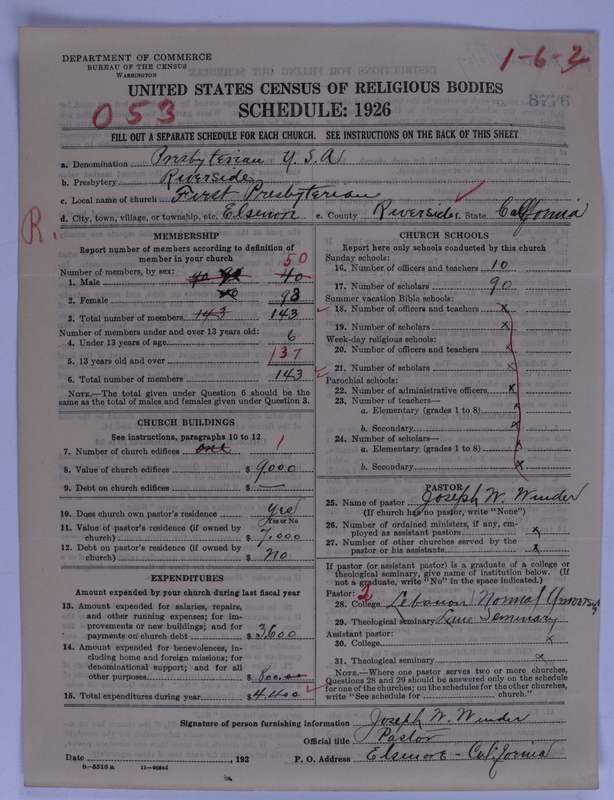 DEPARTMENT OF COMMERCE
BUREAU OF THE CENSUS
WASHINGTON
1-6-2
8776
UNITED STATES CENSUS OF RELIGIOUS BODIES
053
SCHEDULE: 1926
FILL OUT A SEPARATE SCHEDULE FOR EACH CHURCH. SEE INSTRUCTIONS ON THE BACK OF THIS SHEET
a. Denomination Presbyterian U.S.A
b. Presbytery Riverside
c. Local name of church First Presbyterian
d. City, town, village, or township, etc. Elsinore e. County Riverside f. State California
R.
MEMBERSHIP
Report number of members according to definition of
member in your church
50
Number of members, by sex:
1. Male 40
2. Female 93
3. Total number of members 143 143
Number of members under and over 13 years old:
4. Under 13 years of age 6
5. 13 years old and over 137
6. Total number of members 143
NOTE.—The total given under Question 6 should be the
same as the total of males and females given under Question 3.
CHURCH BUILDINGS
See instructions, paragraphs 10 to 12
7. Number of church edifices one 1
8. Value of church edifices $ 9000
9. Debt on church edifices $ —
10. Does church own pastor's residence? yes
Yes or No
11. Value of pastor's residence (if owned by
church) $ 7,000
12. Debt on pastor's residence (if owned by
church) $ no
EXPENDITURES
Amount expended by your church during last fiscal year
13. Amount expended for salaries, repairs,
and other running expenses; for im-
provements or new buildings; and for
payments on church debt $ 3,600
14. Amount expended for benevolences, in-
cluding home and foreign missions; for
denominational support; and for all
other purposes $ 800.00
15. Total expenditures during year $ 4,400
CHURCH SCHOOLS
Report here only schools conducted by this church
Sunday schools:
16. Number of officers and teachers 10
17. Number of scholars 90
Summer vacation Bible schools:
18. Number of officers and teachers x
19. Number of scholars x
Week-day religious schools:
20. Number of officers and teachers x
21. Number of scholars x
Parochial schools:
22. Number of administrative officers x
23. Number of teachers—
a. Elementary (grades 1 to 8) x
b. Secondary x
24. Number of scholars—
a. Elementary (grades 1 to 8) x
b. Secondary x
PASTOR
25. Name of pastor Joseph W. Winder
(If church has no pastor, write "None")
26. Number of ordained ministers, if any, em-
ployed as assistant pastors x
27. Number of other churches served by the
pastor or his assistants x
If pastor (or assistant pastor) is a graduate of a college or
theological seminary, give name of institution below. (If
not a graduate, write "No" in the space indicated.)
Pastor: 2
28. College Lebanon Normal University
29. Theological seminary Lane Seminary
Assistant pastor:
30. College x
31. Theological seminary x
NOTE.—Where one pastor serves two or more churches,
Questions 28 and 29 should be answered only on the schedule
for one of the churches; on the schedules for the other churches,
write "See schedule for church."
Signature of person furnishing information Joseph W. Winder
Official title Pastor
Date , 192 P. O. Address Elsinore - California
8—5518a 11—9034d